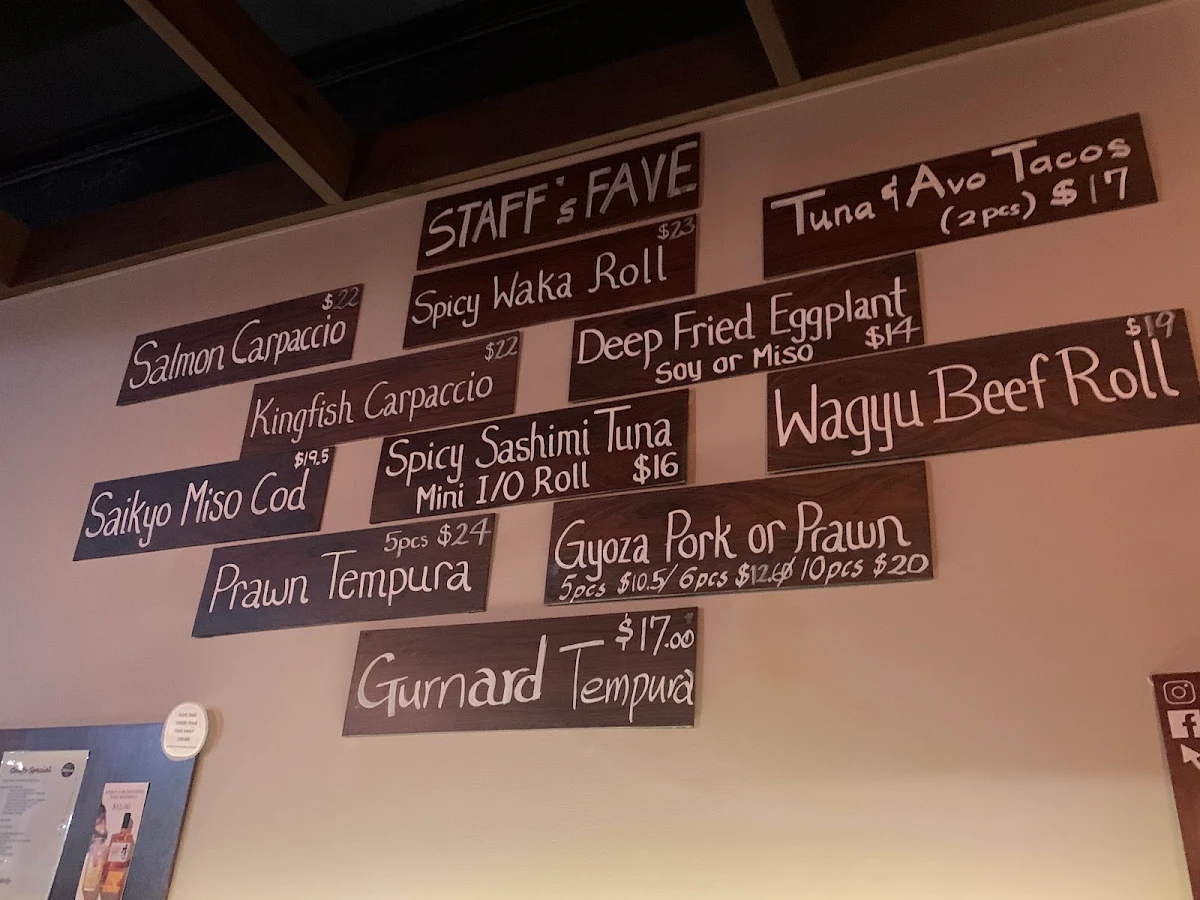 STAFF's FAVE
Tuna & Avo Tacos
(2pcs) $17
$23
Spicy Waka Roll
$22
Salmon Carpaccio
Deep Fried Eggplant
Soy or Miso $14
$19
Wagyu Beef Roll
$22
Kingfish Carpaccio
Spicy Sashimi Tuna
Mini I/O Roll $16
$19.5
Saikyo Miso Cod
5pcs $24
Prawn Tempura
Gyoza Pork or Prawn
5pcs $10.5/ 6pcs $12.60/ 10pcs $20
$17.00
Gurnard Tempura
f
Chef's Special
$15.00